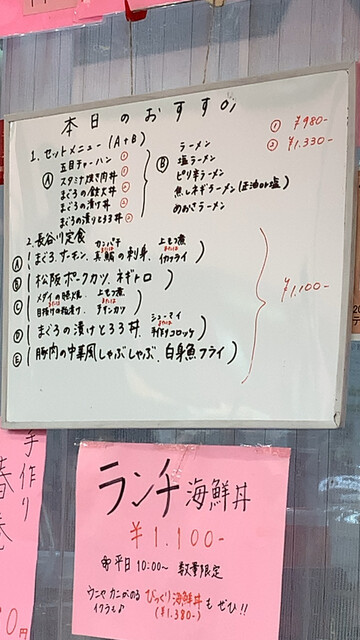 本日のおすすめ
1. セットメニュー (A+B)
① ¥980-
② ¥1.330-
Ⓐ
五目チャーハン ①
スタミナ焼き肉丼 ①
まぐろの鉄火丼 ②
まぐろの漬け丼 ②
まぐろの漬けとろろ丼 ②
Ⓑ
ラーメン
塩ラーメン
ピリ辛ラーメン
焦しネギラーメン(正油or塩)
のおさラーメン
2. 長谷川定食
Ⓐ (まぐろ、サーモン、カンパチ または 真鯛の刺身、上もつ煮 または イカフライ)
Ⓑ (松阪ポークカツ、ネギトロ)
Ⓒ (メダイの照焼 または 目抜けの粕漬け、上もつ煮 または チキンカツ)
Ⓓ (まぐろの漬けとろろ丼、シューマイ または 手作りコロッケ)
Ⓔ (豚肉の中華風しゃぶしゃぶ、白身魚フライ)
¥1.100-
手作り
春巻
0円
ランチ海鮮丼
¥1.100-
平日10:00~ 数量限定
ウニやカニがのる びっくり海鮮丼も ぜひ!!
イクラも♪ (¥1.380-)